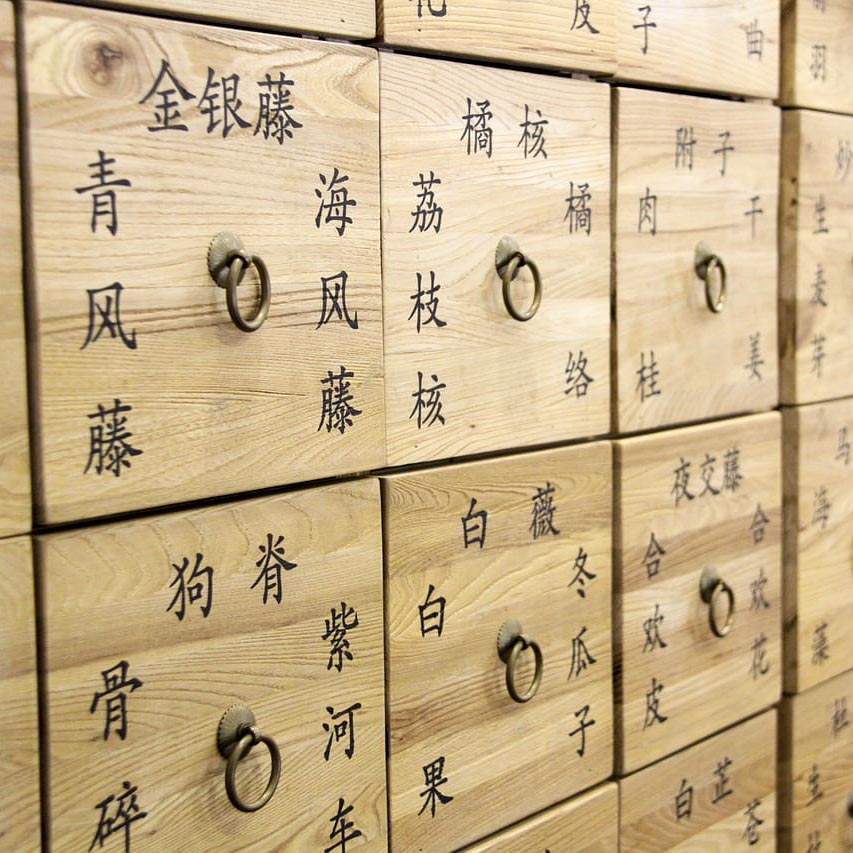 皮
子
曲
羽
金银藤
青风藤
海风藤
橘核
荔枝核
橘络
附子
肉桂
干姜
生麦芽
狗脊
骨碎
紫河车
白薇
白果
冬瓜子
夜交藤
合欢皮
合欢花
马
海藻
白芷
苍
生